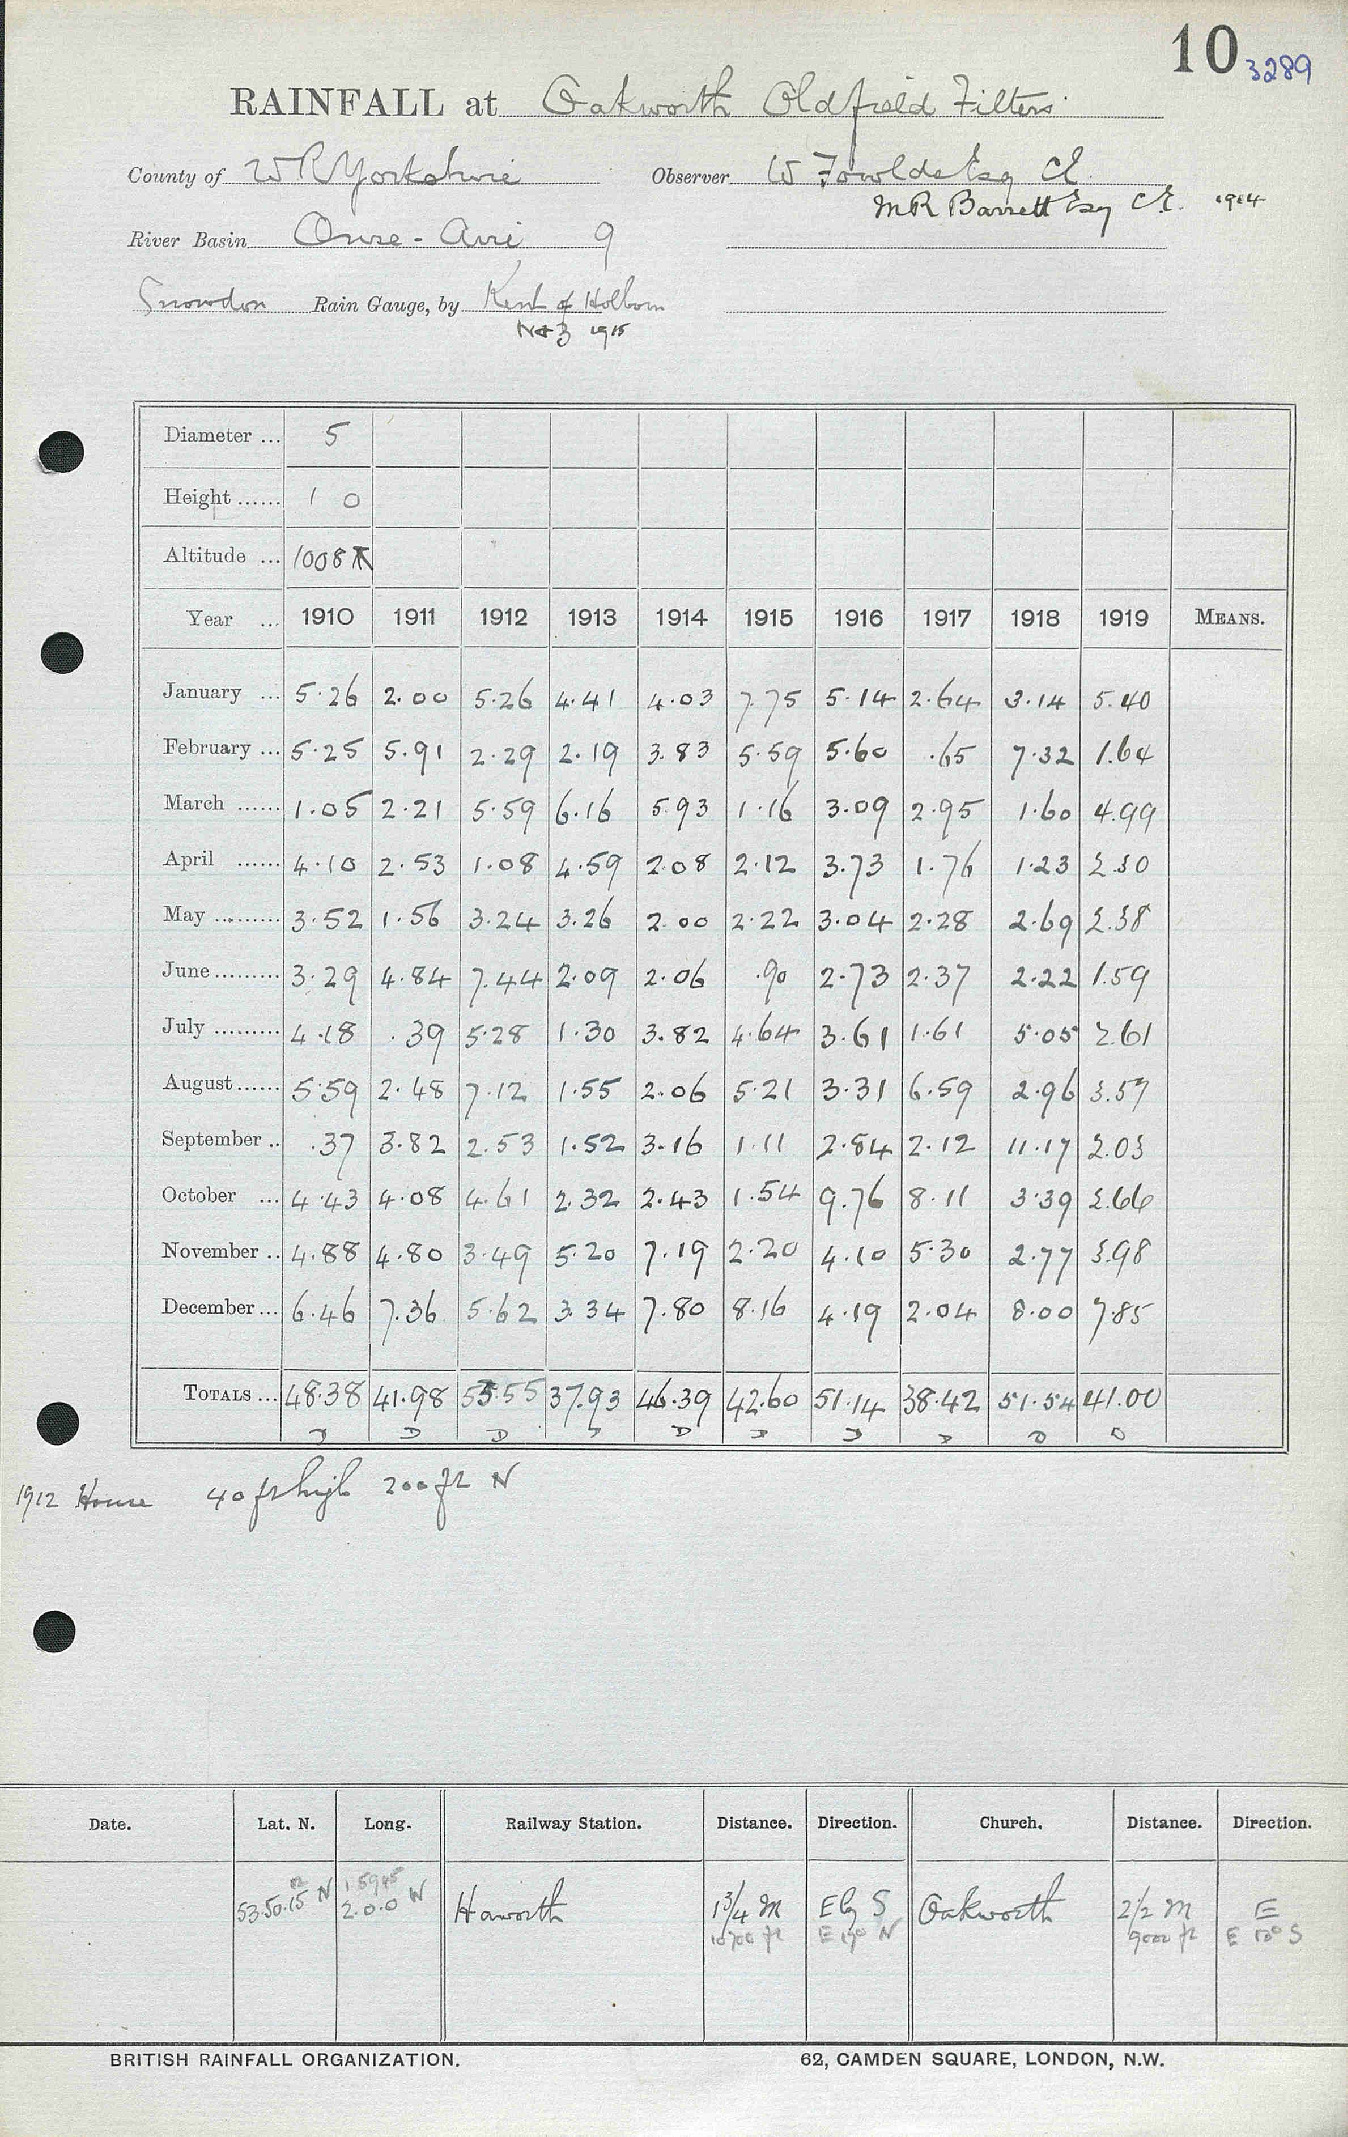 10 3289
RAINFALL at Oakworth Oldfield Filters
County of W R Yorkshire Observer W Fowlds Esq CE
M R Barrett Esq C.E. 1914
River Basin Ouse - Aire 9
Snowdon Rain Gauge, by Kent of Holborn
N & Z 1915
Diameter ... 5
Height ...... 1 0
Altitude ... 1008
Year ... 1910 1911 1912 1913 1914 1915 1916 1917 1918 1919 MEANS.
January ... 5.26 2.00 5.26 4.41 4.03 7.75 5.14 2.64 3.14 5.40
February ... 5.25 5.91 2.29 2.19 3.83 5.59 5.60 .65 7.32 1.64
March ...... 1.05 2.21 5.59 6.16 5.93 1.16 3.09 2.95 1.60 4.99
April ...... 4.10 2.53 1.08 4.59 2.08 2.12 3.73 1.76 1.23 2.30
May ......... 3.52 1.56 3.24 3.26 2.00 2.22 3.04 2.28 2.69 2.38
June ......... 3.29 4.84 7.44 2.09 2.06 .90 2.73 2.37 2.22 1.59
July ......... 4.18 .39 5.28 1.30 3.82 4.64 3.61 1.61 5.05 2.61
August ...... 5.59 2.48 7.12 1.55 2.06 5.21 3.31 6.59 2.96 3.57
September .. .37 3.82 2.53 1.52 3.16 1.11 2.84 2.12 11.17 2.03
October ... 4.43 4.08 4.61 2.32 2.43 1.54 9.76 8.11 3.39 2.66
November .. 4.88 4.80 3.49 5.20 7.19 2.20 4.10 5.30 2.77 3.98
December ... 6.46 7.36 5.62 3.34 7.80 8.16 4.19 2.04 8.00 7.85
TOTALS ... 48.38 41.98 53.55 37.93 46.39 42.60 51.14 38.42 51.54 41.00
D D D D D D D D D D
1912 House 40 ft high 200 ft N
Date. Lat. N. Long. Railway Station. Distance. Direction. Church. Distance. Direction.
12 1 59 45
53.50.15 N 2.0.0 W Haworth 1 3/4 M E by S Oakworth 2 1/2 M E
10700 ft E 17° N 9000 ft E 10° S
BRITISH RAINFALL ORGANIZATION. 62, CAMDEN SQUARE, LONDON, N.W.